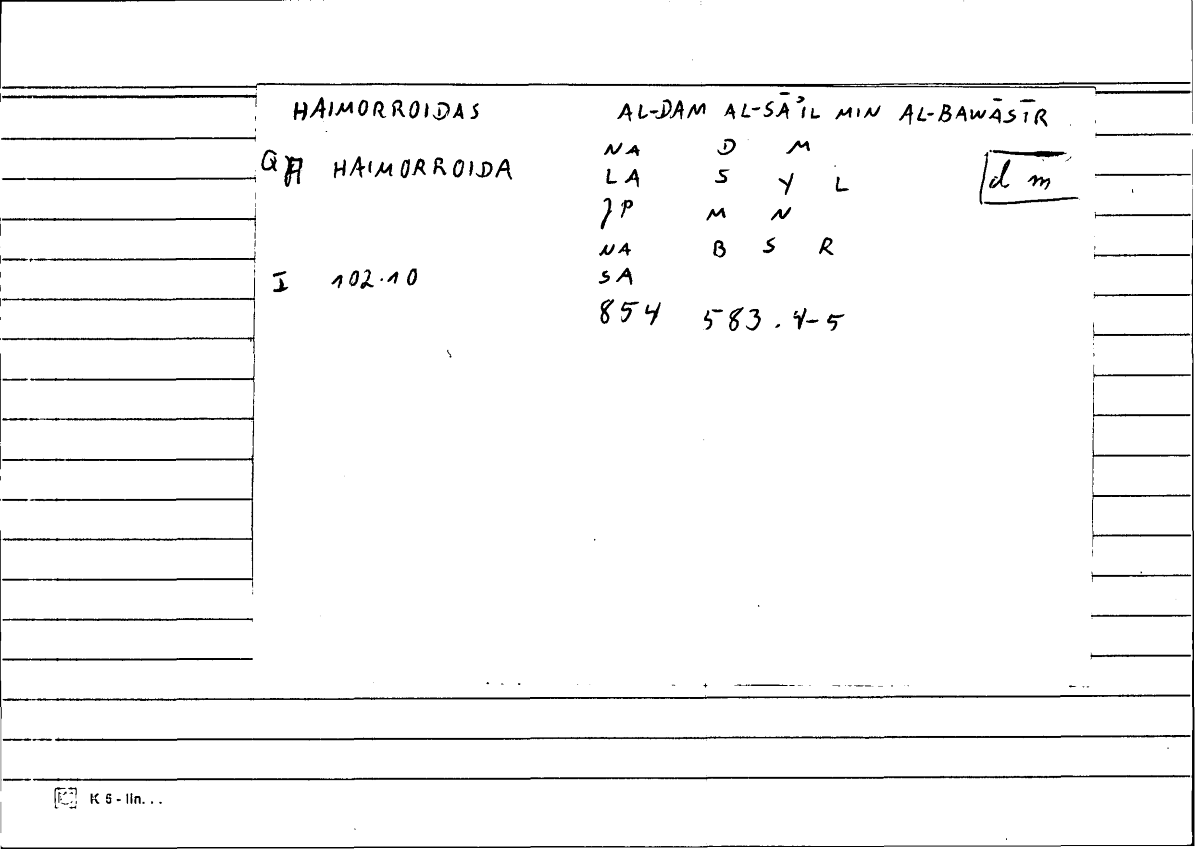 HAIMORROIDAS AL-DAM AL-SĀʾIL MIN AL-BAWĀSĪR
Q HAIMORROIDA NA D M
LA S Y L
d m
JP M N
NA B S R
I 102.10 SA
854 583.4-5
K 5 - lin...